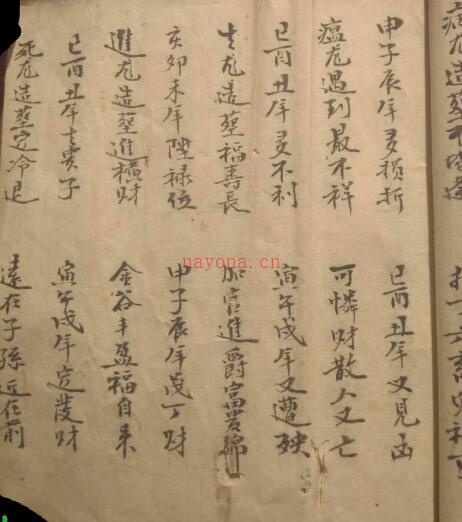 造墓不
申子辰年多损折 巳酉丑年又見凶
瘟尨遇到最不祥 可憐财散人又亡
巳酉丑年多不利 寅午戌年又遭殃
生尨造墓福壽長 加官進爵富貴綿
亥卯未年陞禄位 申子辰年茂丁财
進尨造墓進橫财 金谷丰盈福自来
巳酉丑年生貴子 寅午戌年定發财
死尨造墓定冷退 遠在子孫近在前
nayona.cn